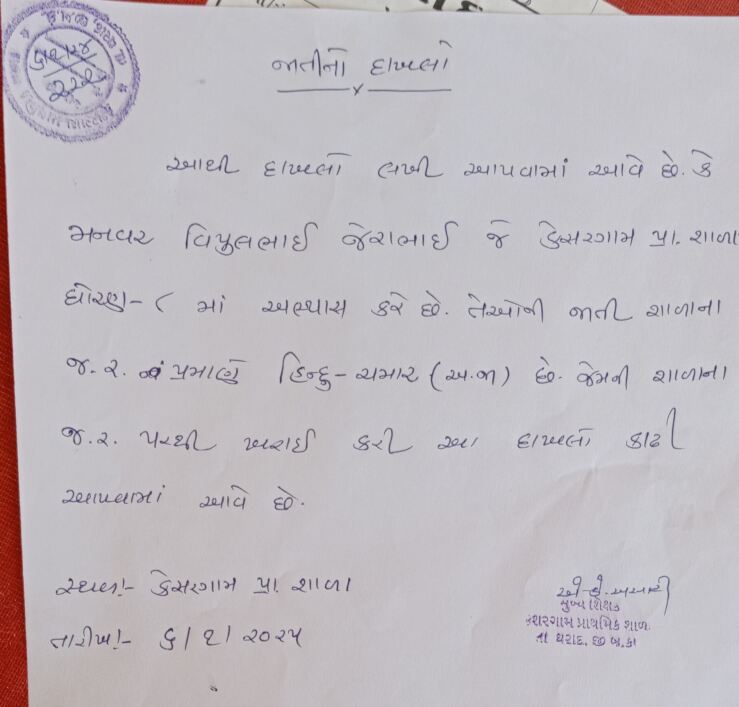 જાતીનો દાખલો
આથી દાખલો લખી આપવામાં આવે છે. કે
મનવર વિપુલભાઈ જેરાભાઈ જે કેસરગામ પ્રા. શાળા
ધોરણ-૮ માં અભ્યાસ કરે છે. તેઓની જાતી શાળાના
જ.ર. નં પ્રમાણે હિન્દુ-ચમાર (અ.જા) છે. જેમની શાળાના
જ.ર. પરથી ખરાઈ કરી આ દાખલો કાઢી
આપવામાં આવે છે.
સ્થળ:- કેસરગામ પ્રા. શાળા
તારીખ:- ૬/૨/૨૦૨૫
મુખ્ય શિક્ષક
કેશરગામ પ્રાથમિક શાળા
તા થરાદ, જી બ.કા